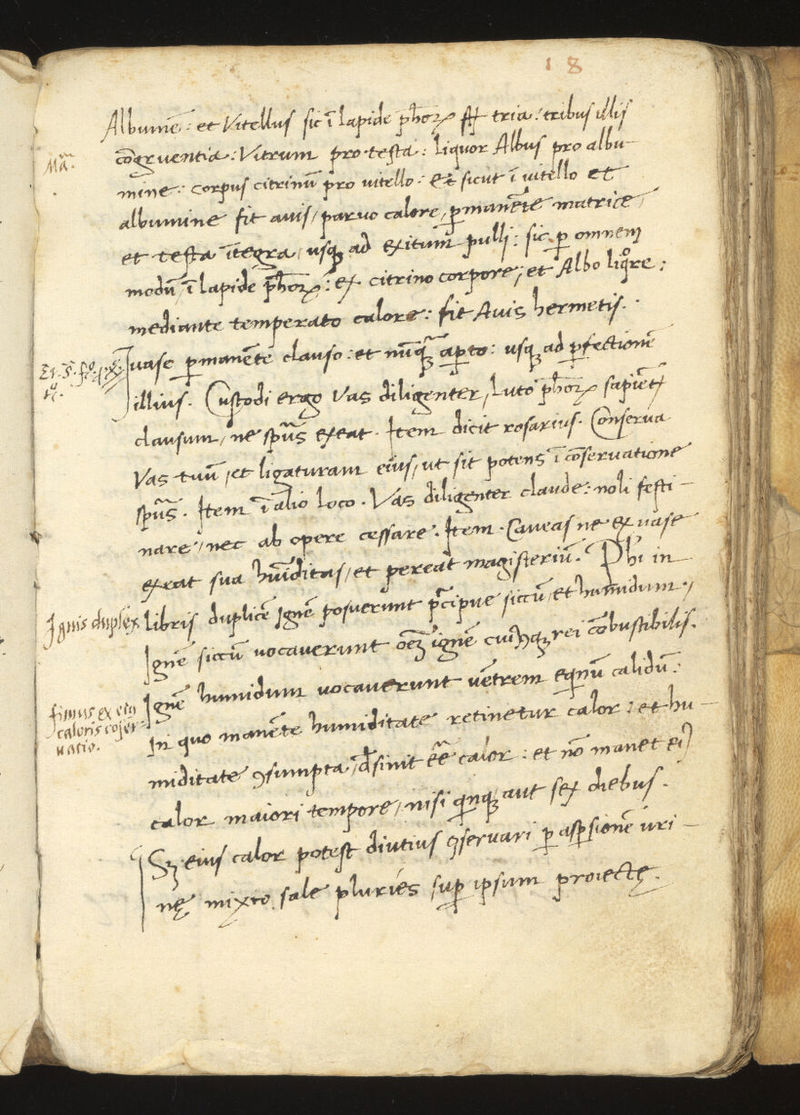 18
Albumē: et Vitellus sic ī lapide ph̄orꝝ st̄ tria: tribus illis
Ma.
cōgruentia: Vitrum pro testa: liquor Albus pro albu-
mine: corpus citrinū pro vitello: Et sicut ī vitello et
albumine fit avis, parvo calore, ꝑmanēte matrice,
et testa ītegra, usqꝫ ad exitum pulli: sic ꝑ omnem
modū, ī lapide ph̄orꝝ: ex citrino corpore, et Albo liqͦre:
mediante temperato calore: fit Avis hermetis.
Ī vase ꝑmanēte clauso: et nūqꝫ aꝑto: usqꝫ ad ꝑfectionē
illius. Custodi ergo Vas diligenter, luto ph̄orꝝ sapiētꝫ
clausum, ne spūs exeat. Item dicit rosarius. Conserva
Vas tuū, et ligaturam eius, ut sit potens ī cōservatione
spūs. Item ī alio loco. Vas diligenter claude: noli festi-
nare, nec ab opere cessare. Item. Caveas ne ex vase
exeat sua hūiditas, et pereat magisteriū. Phi in
Ignis duplex
libris duplicē Ignē posuerunt p̄cipue siccū, et humidum.
Ignē siccū vocaverunt oēꝫ ignē cuiꝰcūqꝫ rei cōbustibilis.
Ignē humidum vocaverunt vētrem eqinū calidū:
fimus ex eqi
caloris cōser-
vatio.
In quo manēte humiditate retinetur calor: et hu-
miditate ꝯsumpta, desinit eē calor: et nō manet ei
calor maiori tempore, nisi qinqꝫ aut sex diebus.
Sꝫ eius calor potest diutius ꝯservari ꝑ aspersionē uri-
nę mixto sale pluries suꝑ ipsum proiectę.